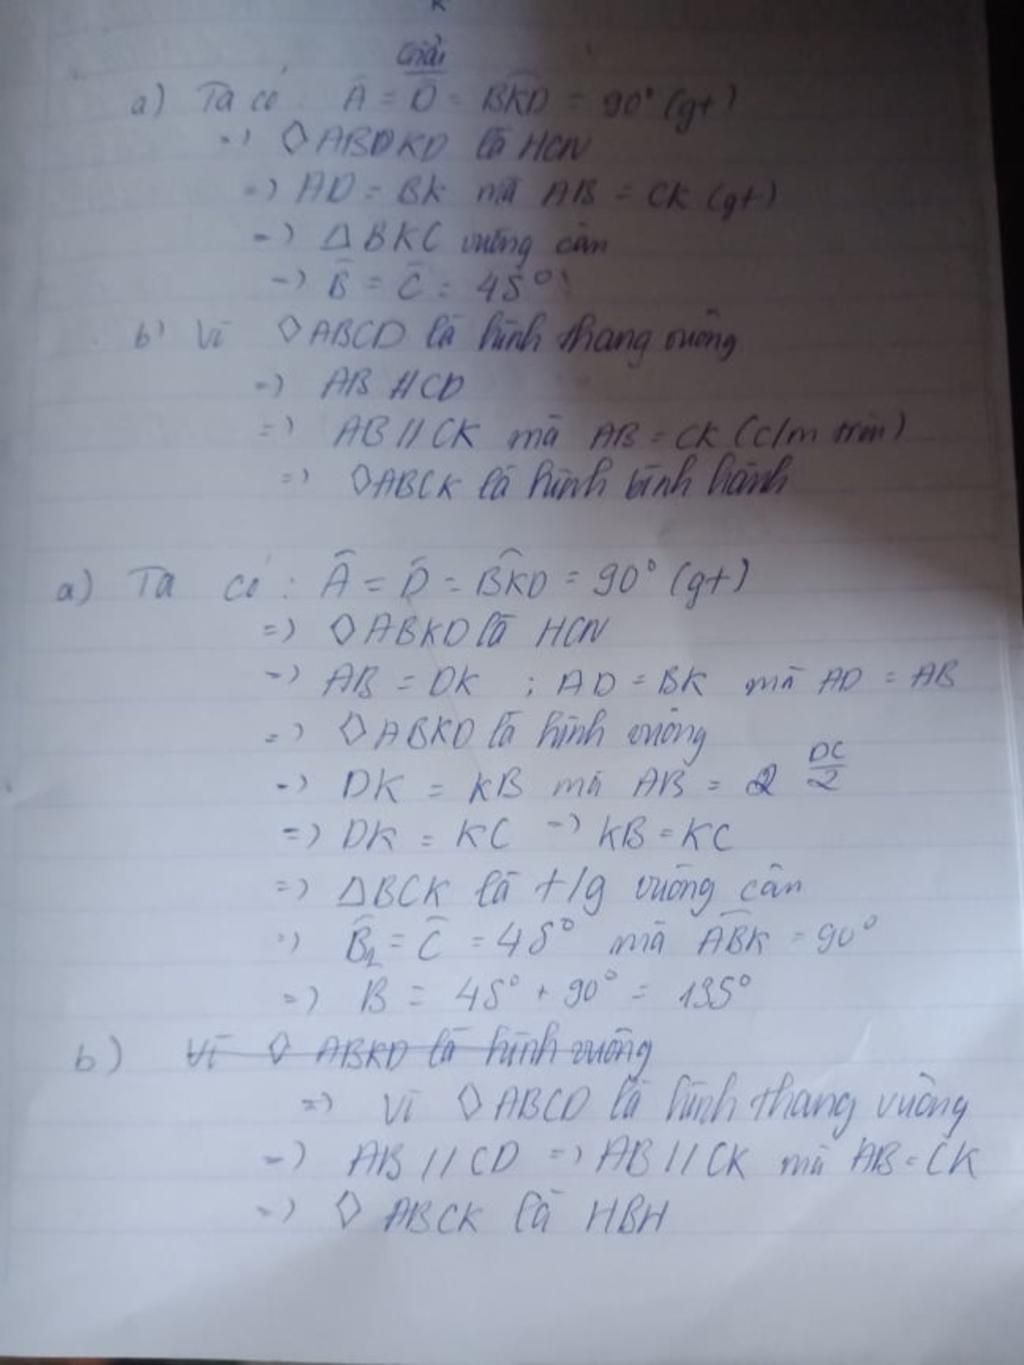 K
Giải
a) Ta có Â = D̂ = BK̂D = 90° (gt)
=> ◇ABDKD là HCN
=> AD = BK mà AB = CK (gt)
=> △BKC vuông cân
=> B̂ = Ĉ = 45°
b) Vì ◇ABCD là hình thang vuông
=> AB // CD
=> AB // CK mà AB = CK (c/m trên)
=> ◇ABCK là hình bình hành
a) Ta có : Â = D̂ = BK̂D = 90° (gt)
=> ◇ABKD là HCN
=> AB = DK ; AD = BK mà AD = AB
=> ◇ABKD là hình vuông
=> DK = KB mà AB = DC/2
=> DK = KC => KB = KC
=> △BCK là t/g vuông cân
=> B̂₂ = Ĉ = 45° mà AB̂K = 90°
=> B = 45° + 90° = 135°
b) Vì ◇ ABKD là hình vuông
=> Vì ◇ABCD là hình thang vuông
=> AB // CD => AB // CK mà AB = CK
=> ◇ ABCK là HBH